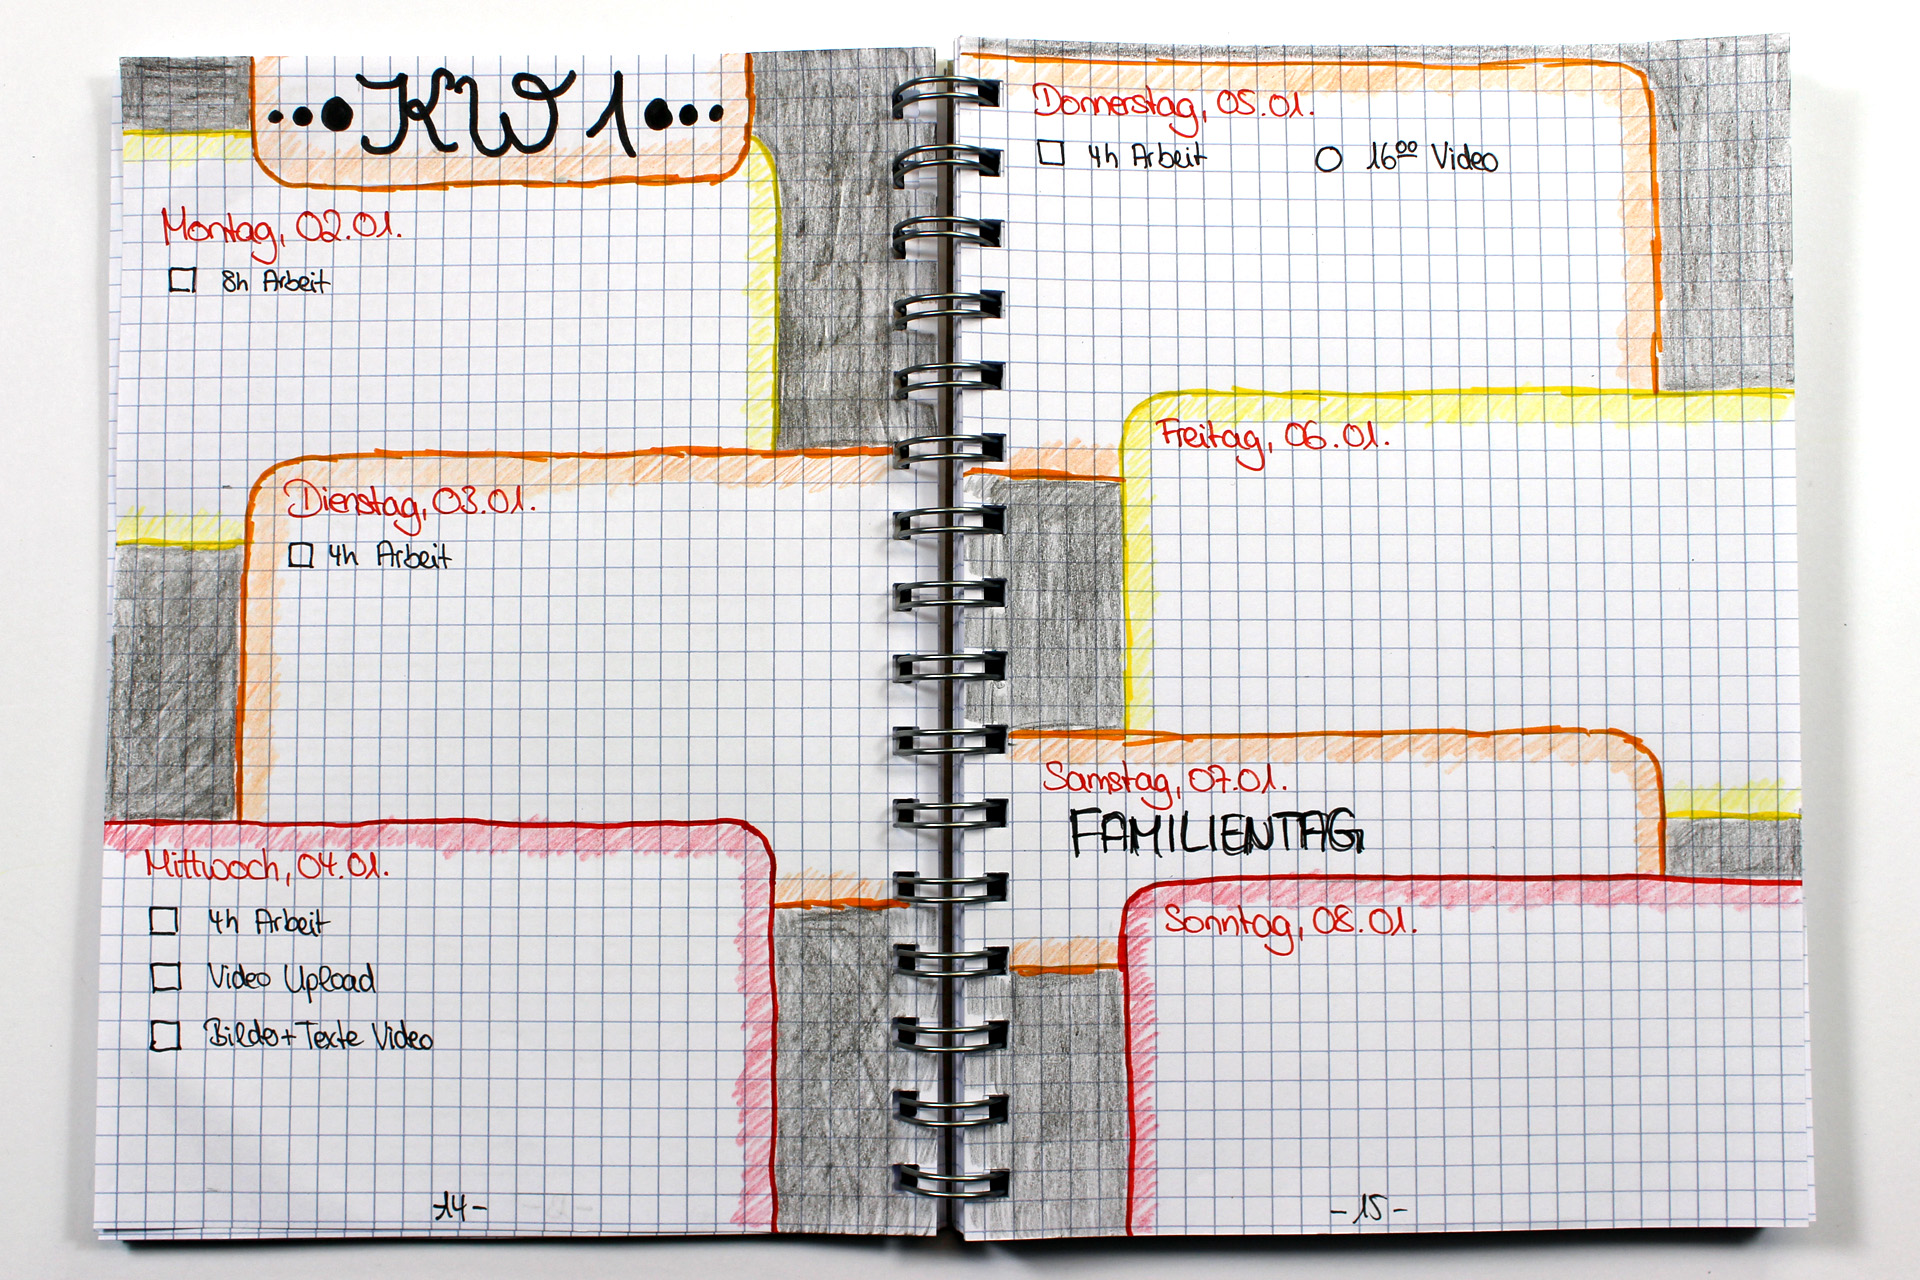 KW 1
Montag, 02.01.
8h Arbeit
Dienstag, 03.01.
4h Arbeit
Mittwoch, 04.01.
4h Arbeit
Video Upload
Bilder+Texte Video
-14-
Donnerstag, 05.01.
4h Arbeit
16⁰⁰ Video
Freitag, 06.01.
Samstag, 07.01.
FAMILIENTAG
Sonntag, 08.01.
-15-